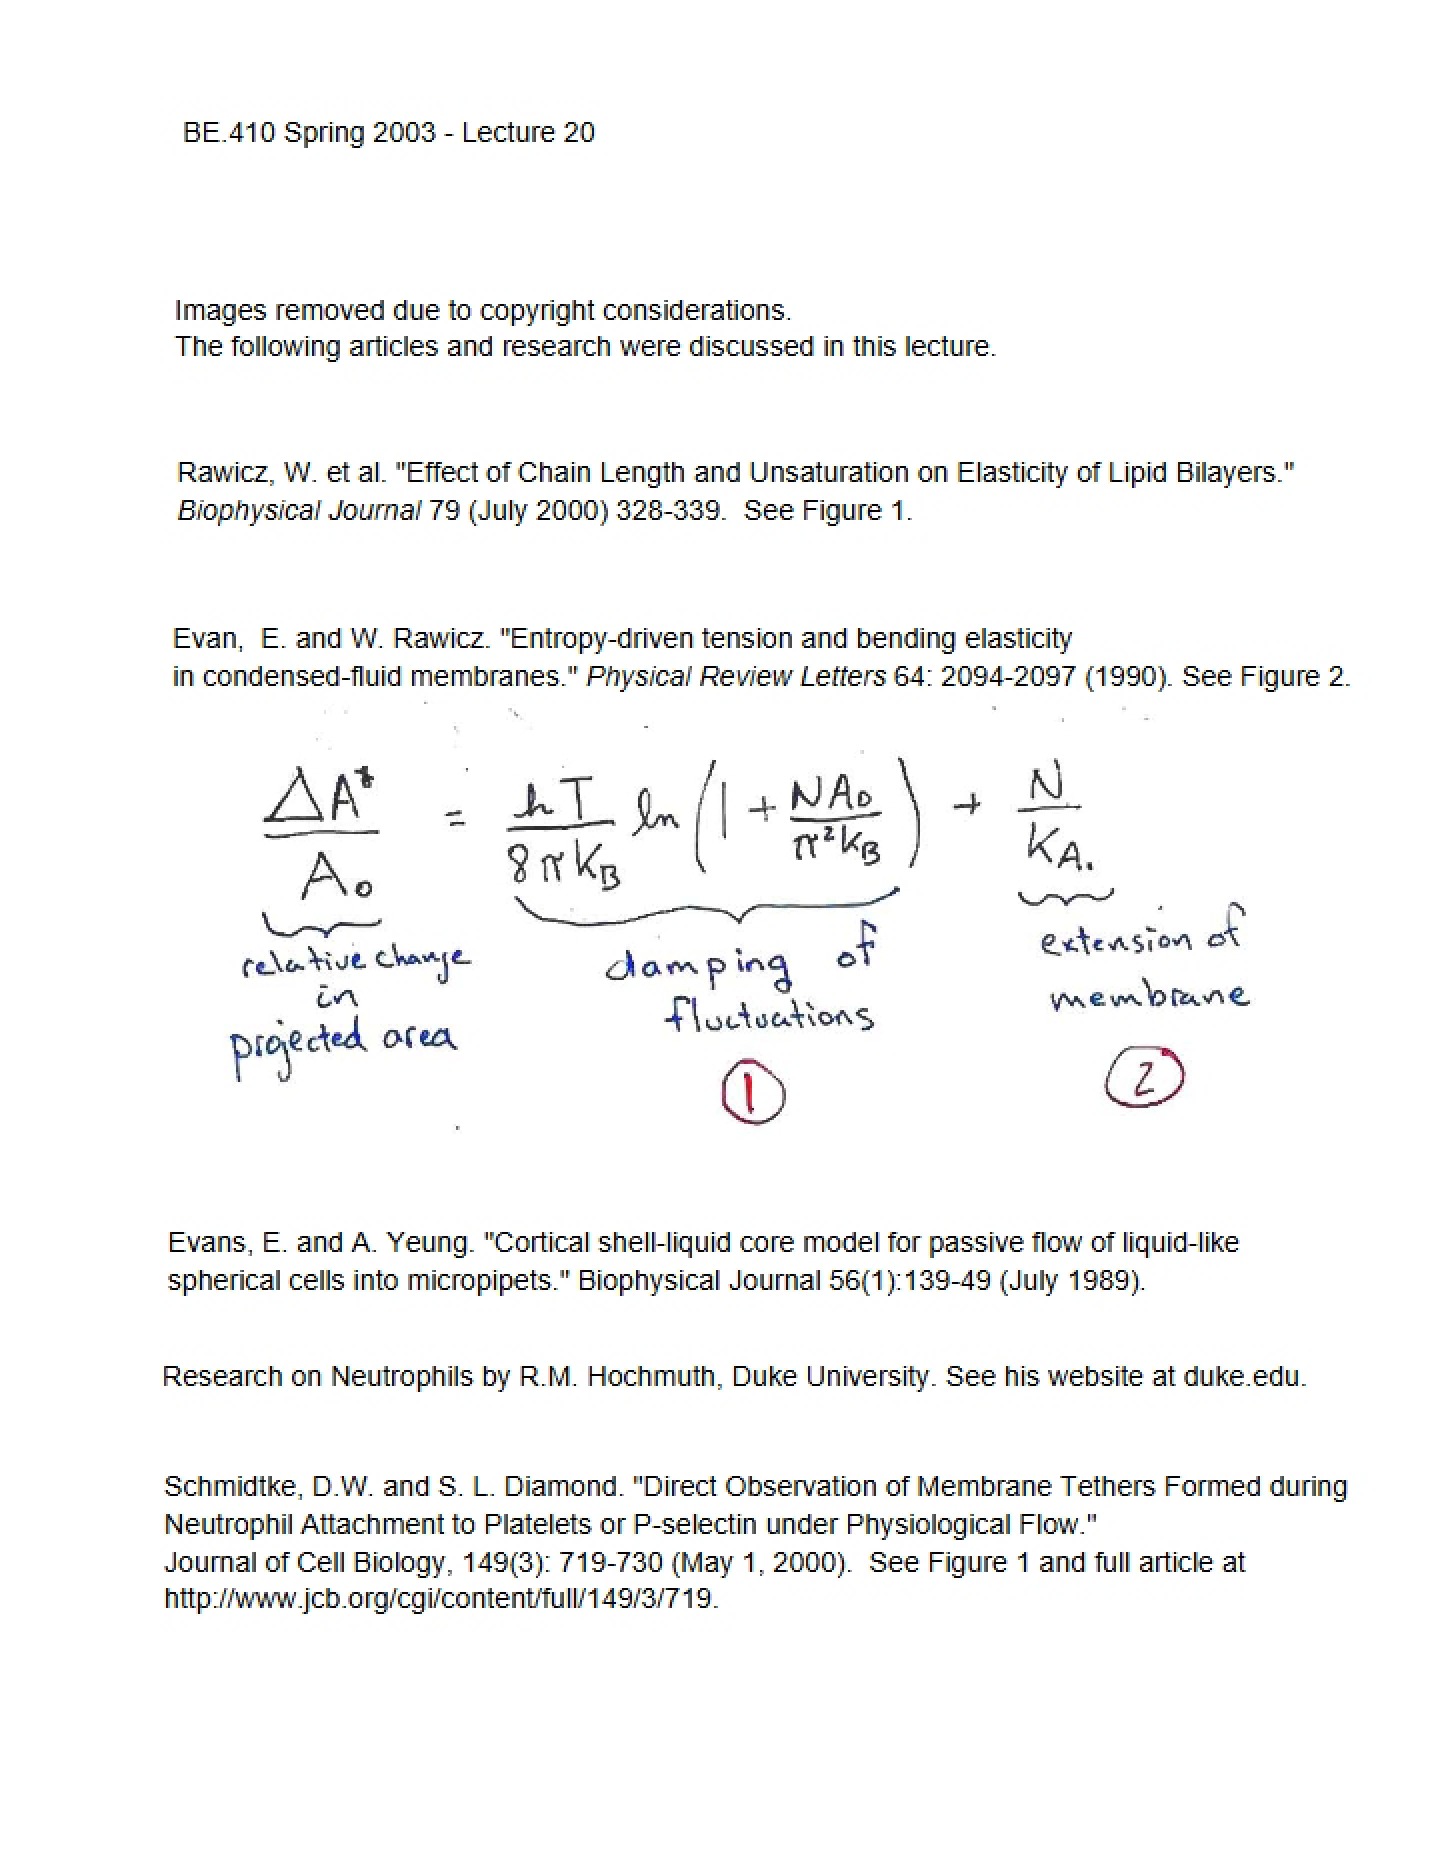 BE.410 Spring 2003 - Lecture 20
Images removed due to copyright considerations.
The following articles and research were discussed in this lecture.
Rawicz, W. et al. "Effect of Chain Length and Unsaturation on Elasticity of Lipid Bilayers."
Biophysical Journal 79 (July 2000) 328-339.  See Figure 1.
Evan,  E. and W. Rawicz. "Entropy-driven tension and bending elasticity
in condensed-fluid membranes." Physical Review Letters 64: 2094-2097 (1990). See Figure 2.
ΔA*/A₀ = kT/8πK_B ln(1 + NA₀/π²K_B) + N/K_A.
relative change in projected area
damping of fluctuations
extension of membrane
1
2
Evans, E. and A. Yeung. "Cortical shell-liquid core model for passive flow of liquid-like
spherical cells into micropipets." Biophysical Journal 56(1):139-49 (July 1989).
Research on Neutrophils by R.M. Hochmuth, Duke University. See his website at duke.edu.
Schmidtke, D.W. and S. L. Diamond. "Direct Observation of Membrane Tethers Formed during
Neutrophil Attachment to Platelets or P-selectin under Physiological Flow."
Journal of Cell Biology, 149(3): 719-730 (May 1, 2000).  See Figure 1 and full article at
http://www.jcb.org/cgi/content/full/149/3/719.